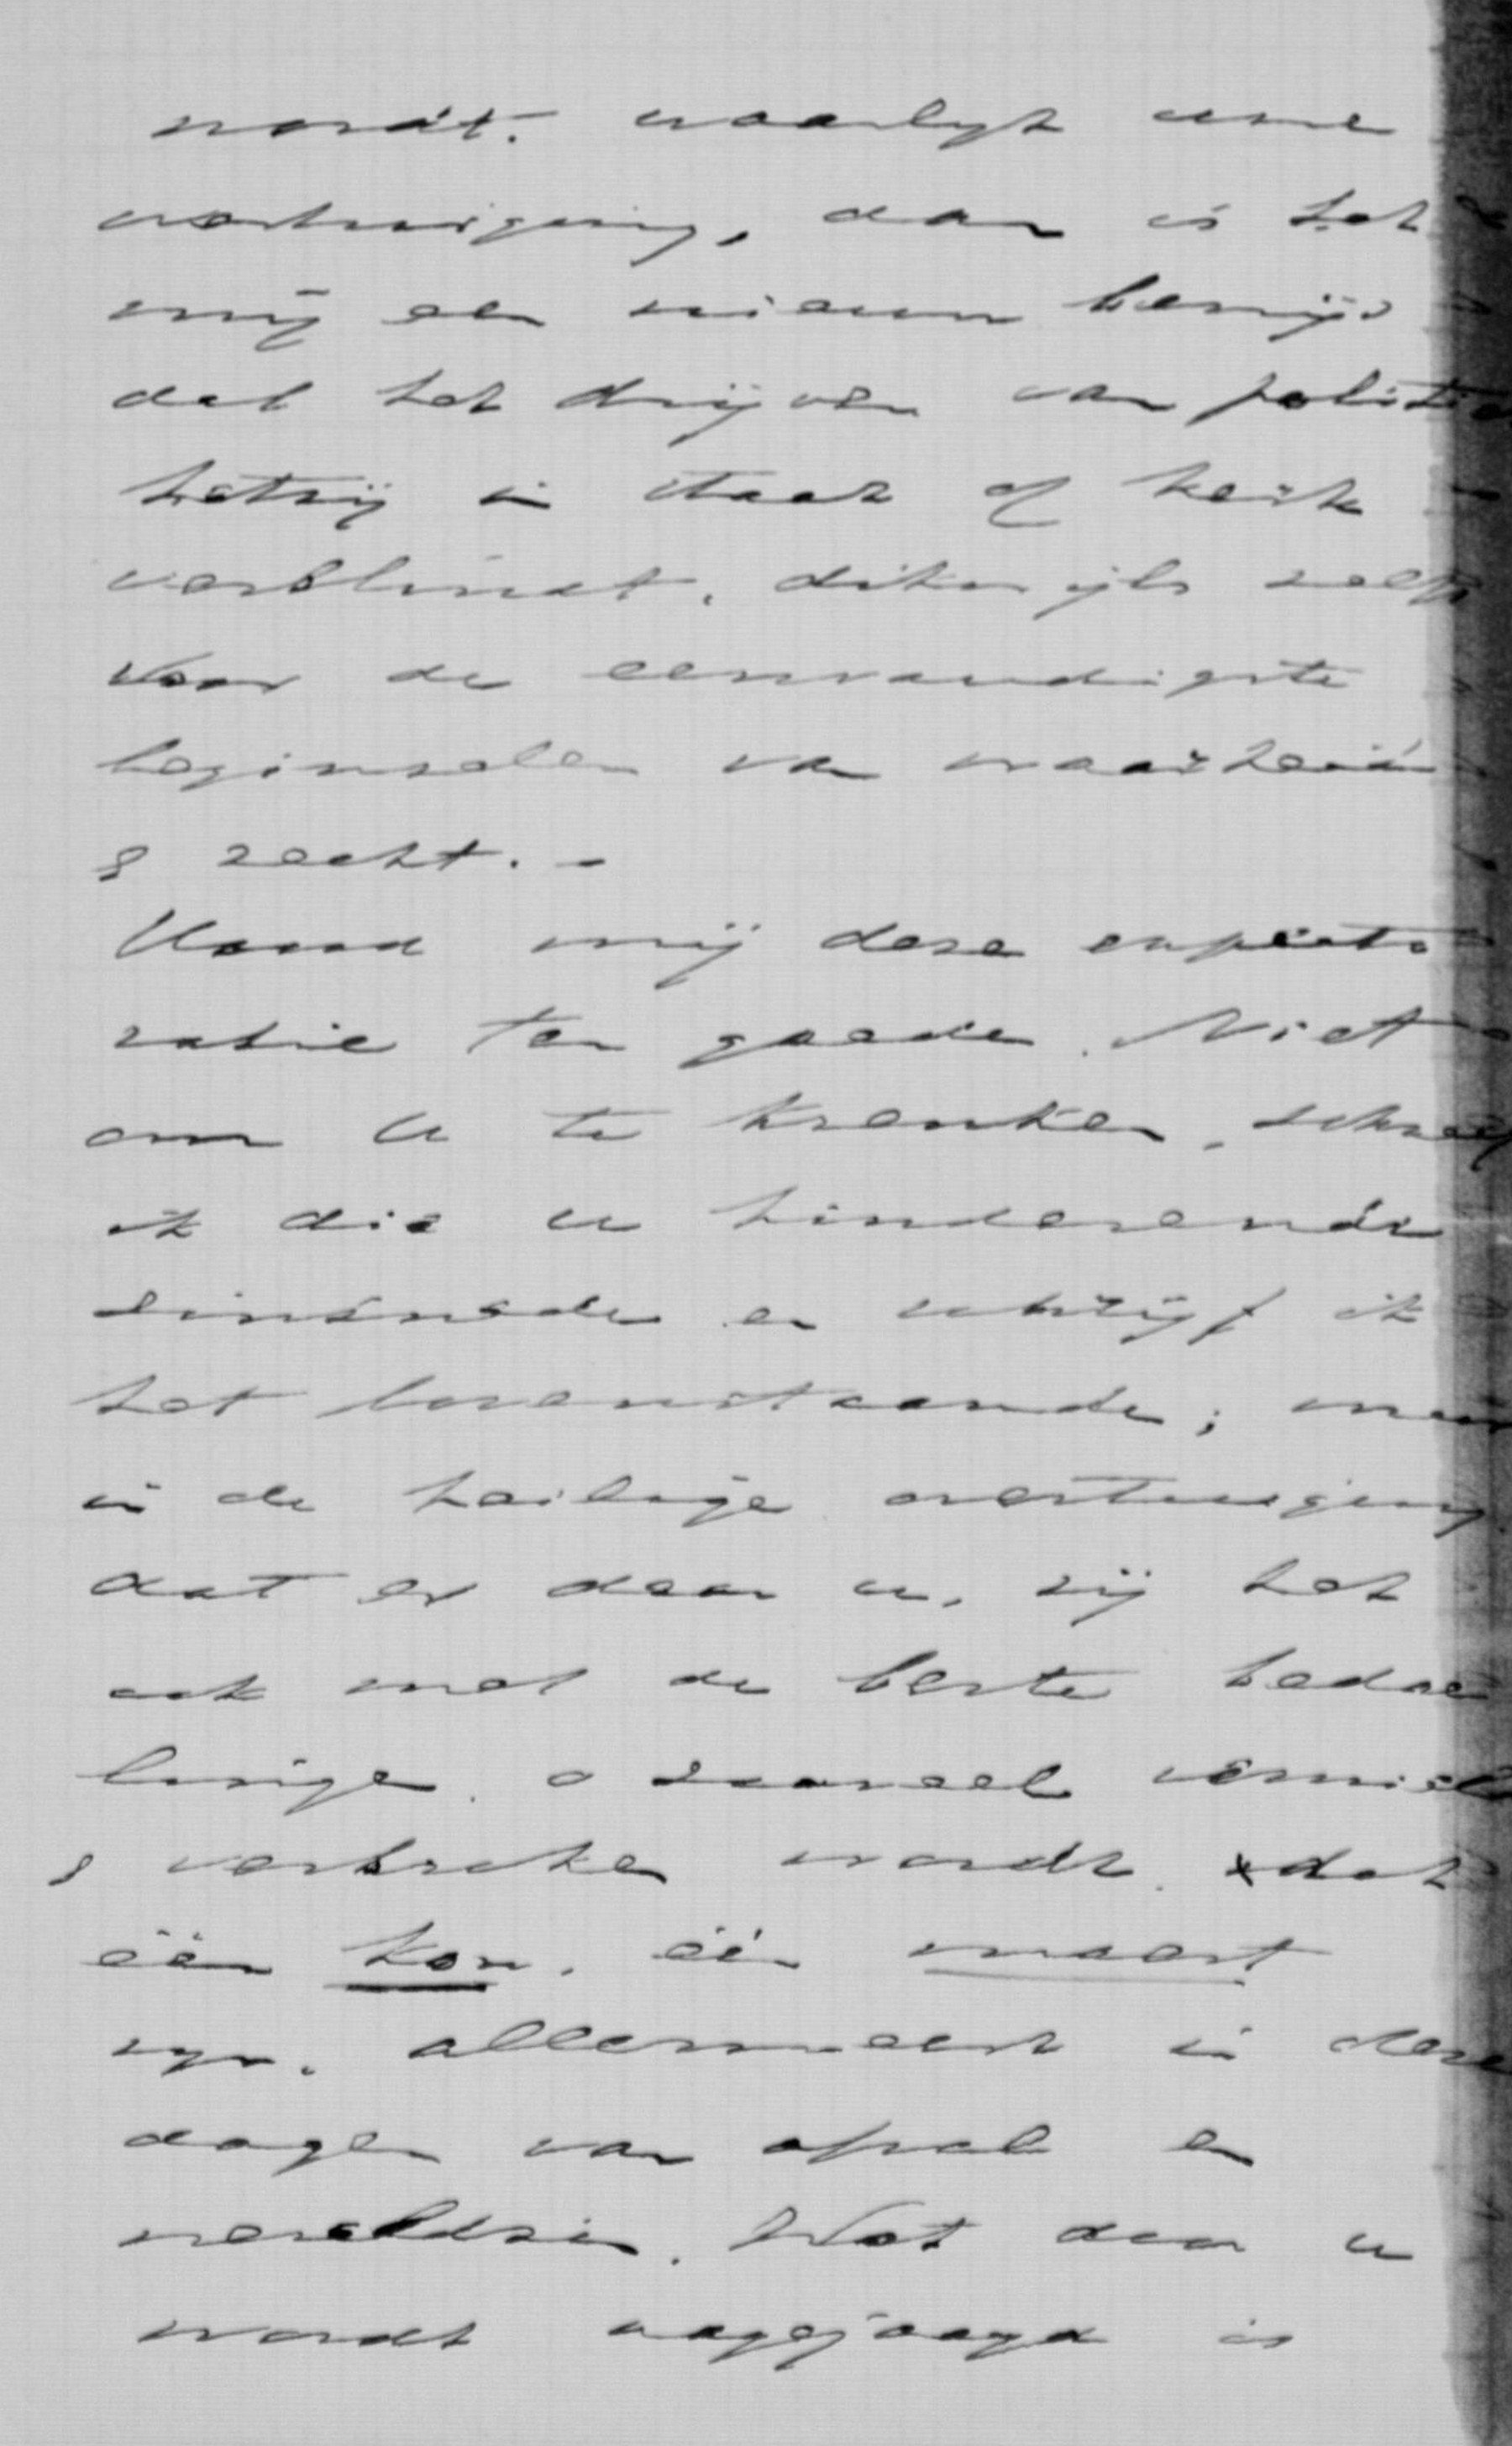 wordt. waarlyk uwe
overtuiging, dan is het
mij een nieuw bewijs
dat het drijven van politie
hetzij in staat of kerk
verblindt, dikwijls zelfs
voor de eenvoudigste
beginselen van waarheid
& recht. -
Houd mij deze expecto
ratie ten goede. Niet
om U te krenken, schreef
ik die u hinderende
zinsnede en schrijf ik
het bovenstaande; maar
in de heilige overtuiging
dat er door u, zij het
ook met de beste bedoe
lingen, o zooveel vernield
& verbroken wordt. dat
één kon, één moest
zyn, allermeest in deze
dagen van afval en
wereldzin. Wat door u
wordt nagejaagd is